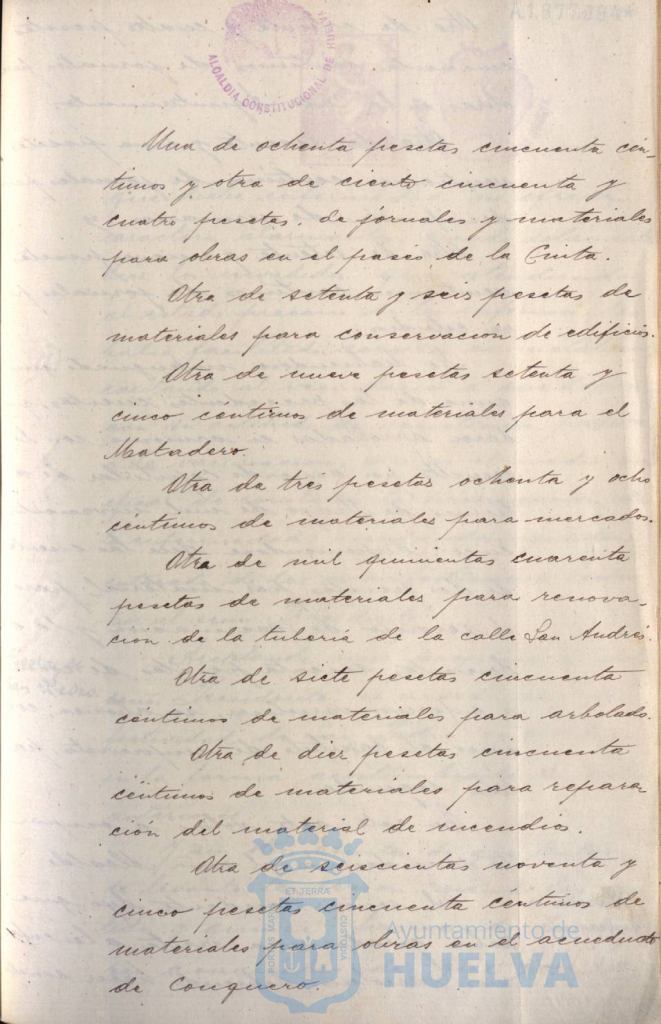 A1.877.394*
ALCALDIA CONSTITUCIONAL DE HUELVA
Una de ochenta pesetas cincuenta cén-
timos y otra de ciento cincuenta y
cuatro pesetas. de jornales y materiales
para obras en el paseo de la Cinta.
Otra de setenta y seis pesetas de
materiales para conservacion de edificios.
Otra de nueve pesetas setenta y
cinco céntimos de materiales para el
Matadero.
Otra de tres pesetas ochenta y ocho
céntimos de materiales para mercados.
Otra de mil quinientas cuarenta
pesetas de materiales para renova-
ción de la tubería de la calle San Andrés.
Otra de siete pesetas cincuenta
céntimos de materiales para arbolado.
Otra de diez pesetas cincuenta
céntimos de materiales para repara-
ción del material de incendios.
Otra de seiscientas noventa y
cinco pesetas cincuenta céntimos de
materiales para obras en el acueducto
de Conquero.
PORTUS MARIS ET TERRÆ CUSTODIA
Ayuntamiento de
HUELVA